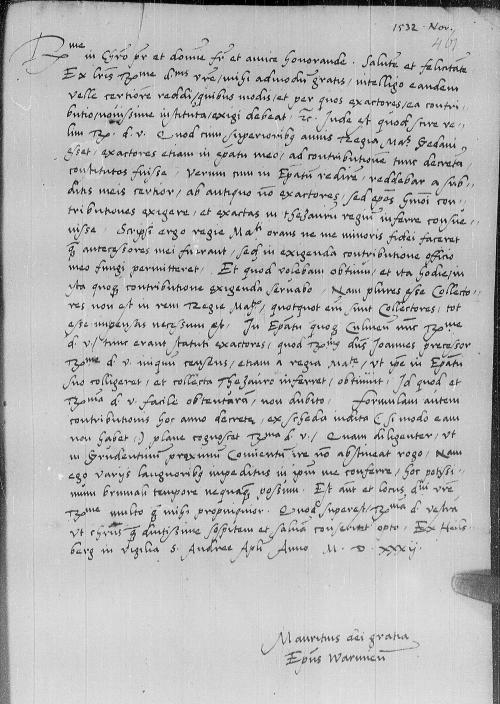 1532 · Nov.
467
R.me in Chro pr et domine fr et amice honorande · Salute et felicitate
Ex lris R.me d. vre / mihi admodu gratis / intelligo eandem
velle certiore reddi / quibus modis / et per quos exactores / ea contri=
butio / novissime instituta / exigi debeat · Inde et quod scire ve=
lim R. d. v. Quod cum superioribus annis Regia Mas Gedani
esset / exactores etiam in epatu meo / ad contributione tunc decreta /
constitutos fuisse · Verum cum in Epatu redire / reddebar a sub=
ditis meis certior / ab antiquo no exactores / sed epos hmoi con=
tributiones exigere / et exactas in thezauru regiu inferre consue=
visse · Scripsi ergo regie Mati orans ne me minoris fidei faceret
q antecessores mei fuerant / sed in exigenda contributione officio
meo fungi permitteret · Et quod volebam obtinui / et ita hodie / in
ista quoq contributione exigenda servabo · Nam plures esse Collecto=
res non est in rem Regie Matis / quotquot em sunt Collectores / tot
esse impensas necessum est · In Epatu quoq Culmen nunc R.me
d. v. / tunc erant statuti exactores / quod R.mus dns Joannes precessor
R.me d. v. iniquu censuit / etiam a regia Mate / ut ipse in Epatu
suo colligeret / et collecta thezauro inferret / obtinuit · Id quod et
R.ma d. v. facile obtentura / non dubito · Formulam autem
contributionis hoc anno decrete / ex scheda indita (si modo eam
non habet) plane cognoscet R.ma d. v. / Quam diligenter / ut
in Grudentinum proximu Conventu ire no abstineat rogo / Nam
ego variis languoribus impeditus in ipm me conferre / hoc potissi=
mum brumali tempore nequaq possum · Est aut et locus dni vre
R.me multo q mihi propinquior · Quod superest / R.ma d. vestra
ut chrus q diutissime sospitem et salva conservet opto · Ex Heils=
berg in vigilia S. Andree Apli Anno M · D · XXXij ·
Mauritius dei gratia
Epus Warmien